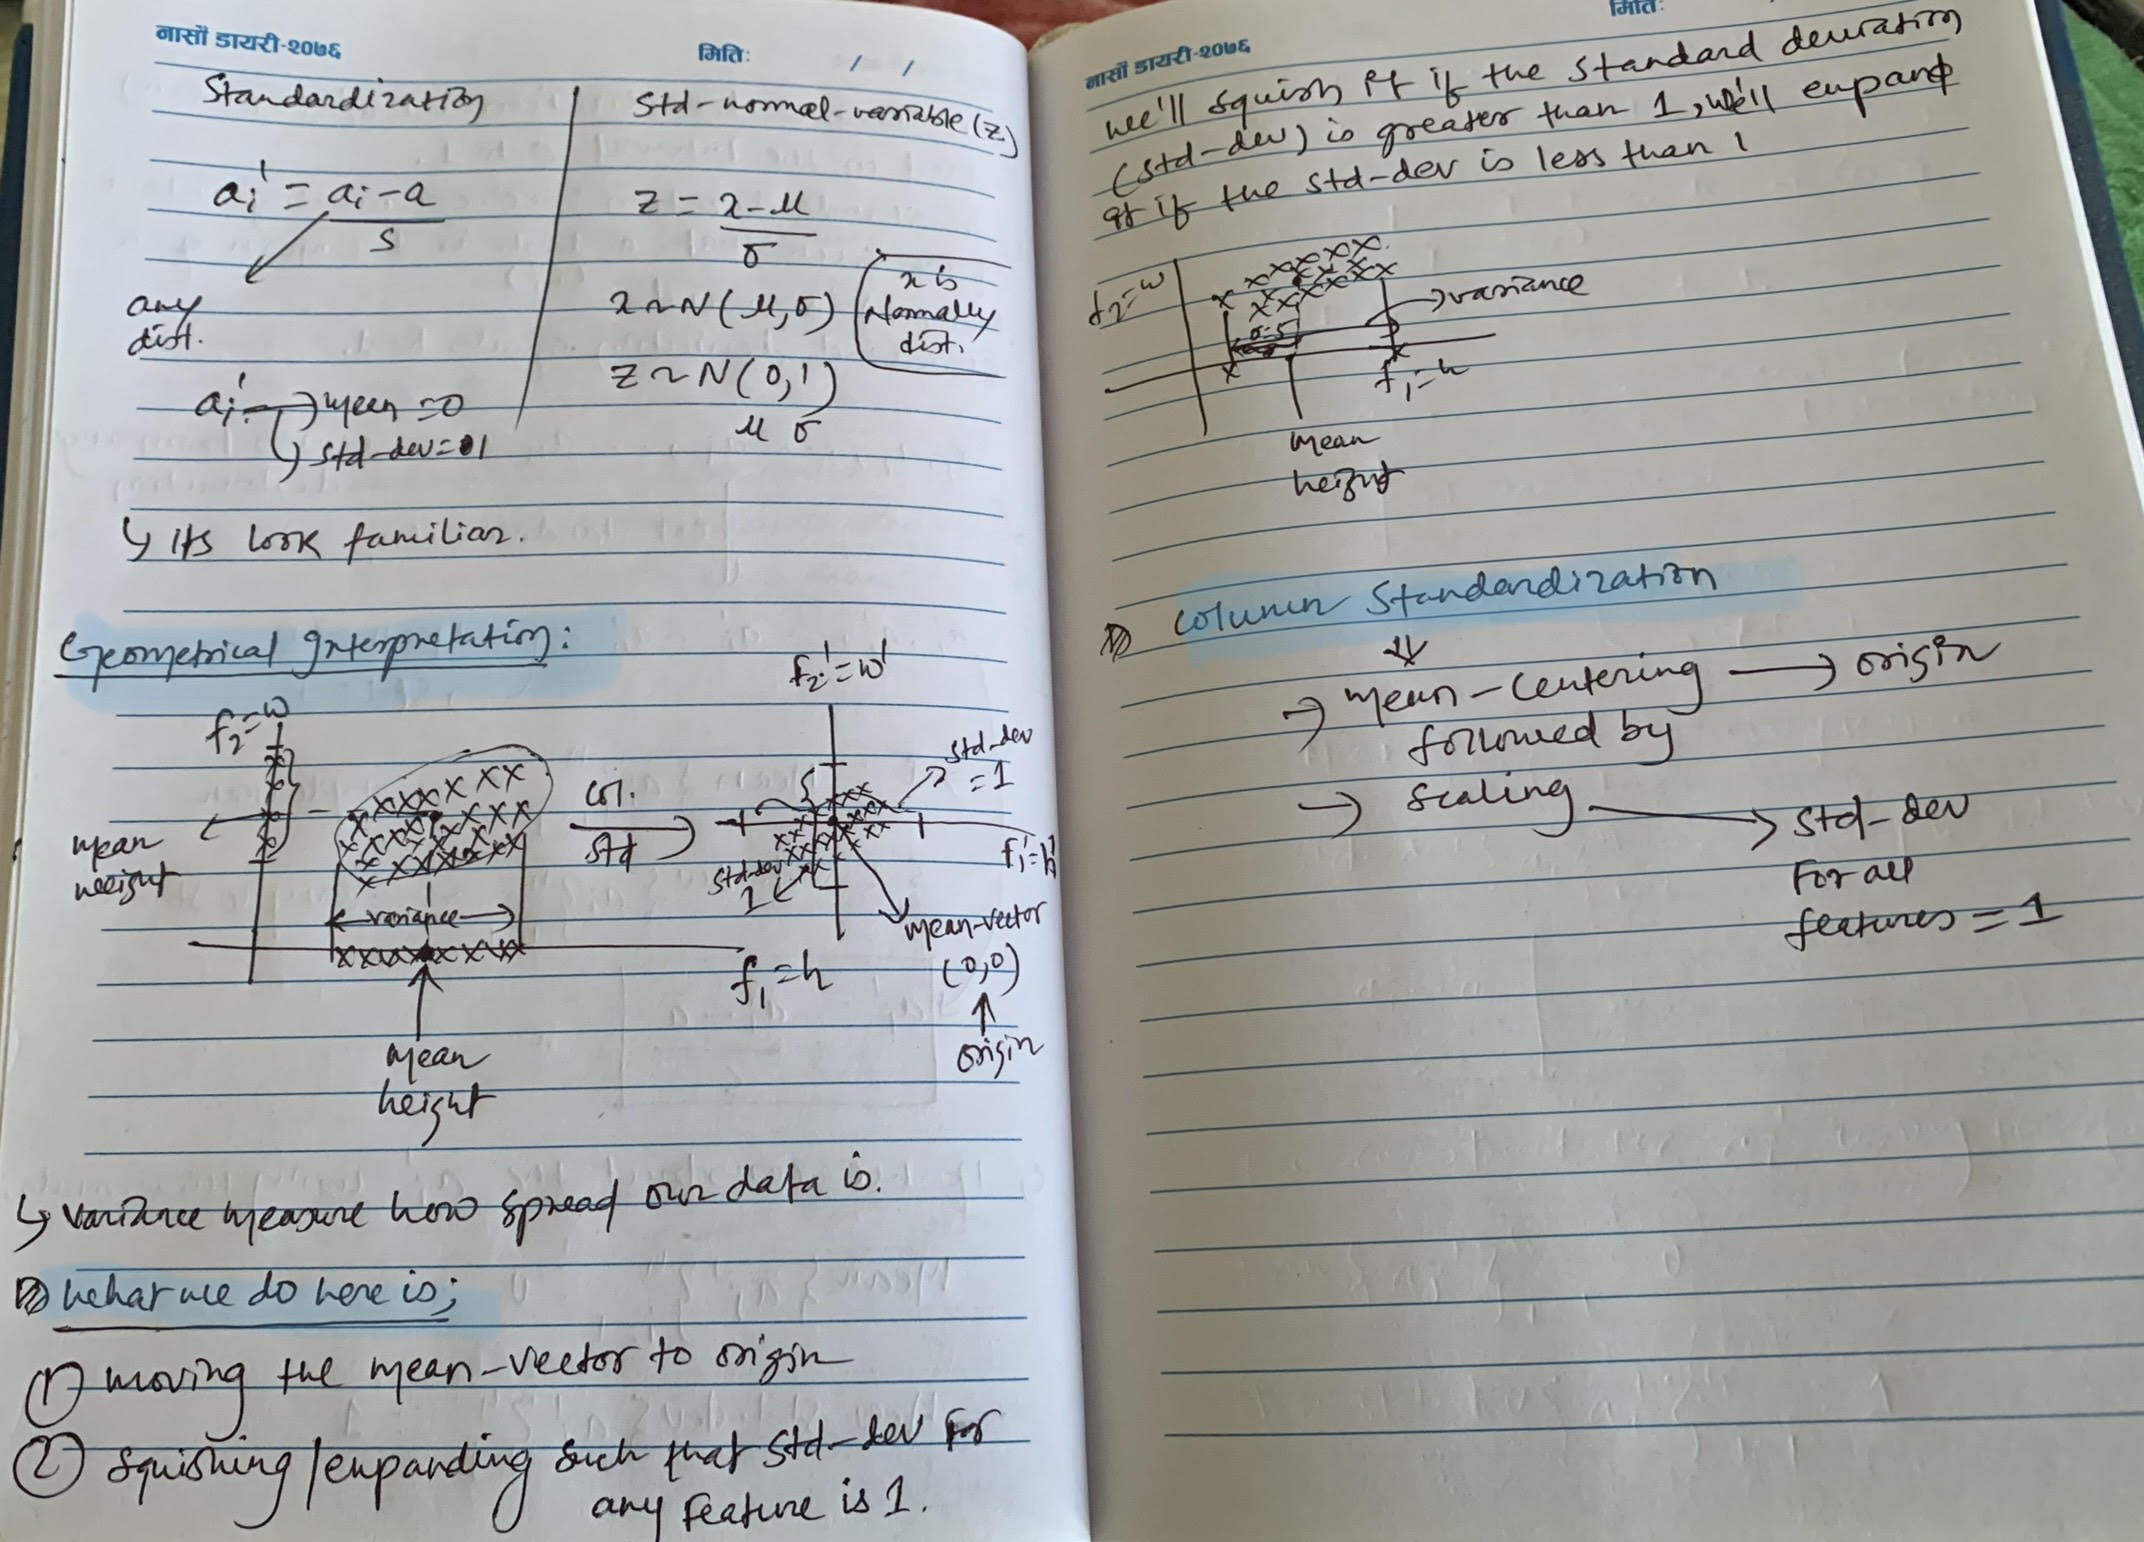 नासाँ डायरी-२०७६
मितिः / /
Standardization
std-normal-variable (z)
ai' = ai - a
s
any
dist.
ai' → mean = 0
std-dev = 1
z = x - μ
σ
x ~ N(μ, σ)
x is
Normally
dist.
z ~ N(0, 1)
μ σ
↳ Its look familiar.
Geometrical Interpretation:
f2 = w
mean
weight
variance
f1 = h
mean
height
col.
std
f2' = w'
std-dev
= 1
f1' = h'
std-dev
1
mean-vector
(0,0)
origin
↳ variance measure how spread our data is.
what we do here is;
① moving the mean-vector to origin
② squishing/expanding such that std-dev for
any feature is 1.
नासाँ डायरी-२०७६
मितिः
we'll squish it if the standard deviation
(std-dev) is greater than 1, we'll expand
it if the std-dev is less than 1
f2 = w
variance
σ=5
f1 = h
mean
height
column Standardization
→ mean-centering → origin
followed by
→ scaling → std-dev
for all
features = 1